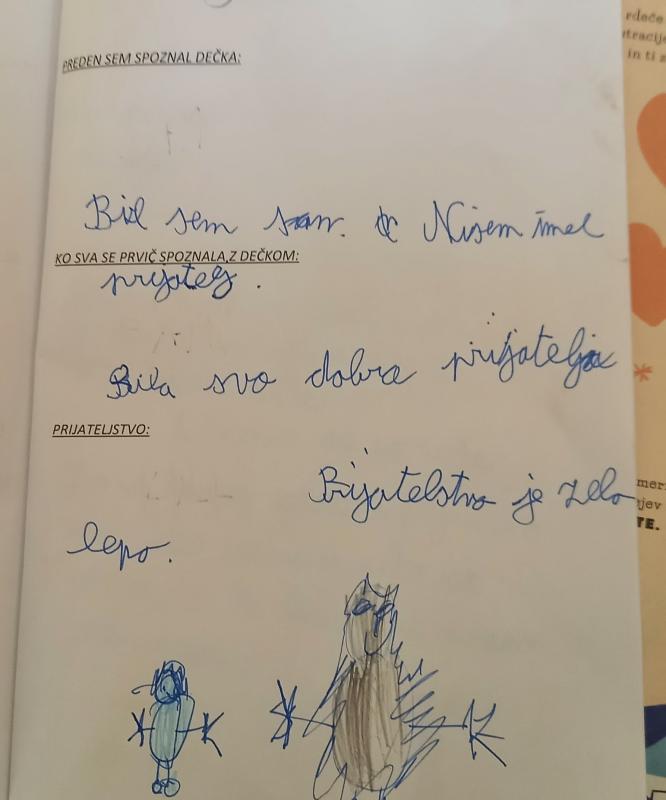 PREDEN SEM SPOZNAL DEČKA:
Bil sem sam. Nisem imel
KO SVA SE PRVIČ SPOZNALA Z DEČKOM:
prijatelj.
Bila svo dobra prijatelja
PRIJATELJSTVO:
Prijatelstvo je zelo
lepo.
rdeče
in ti z
TE.